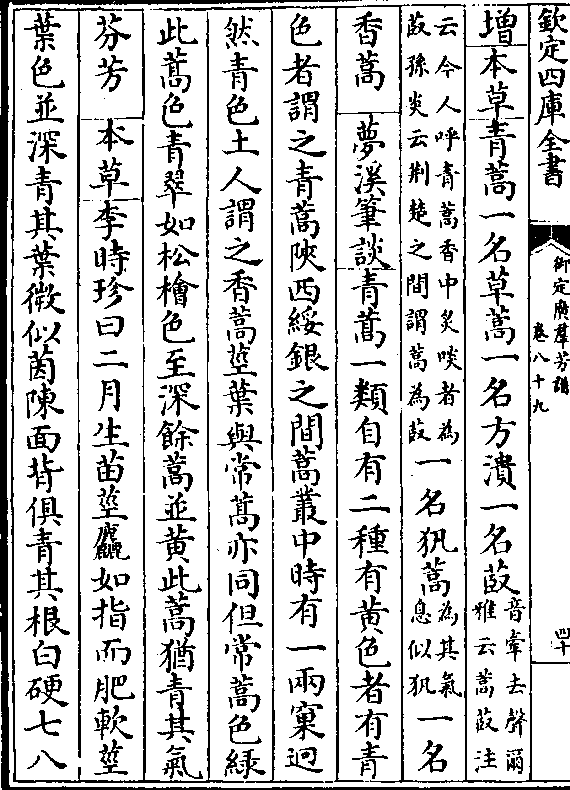 欽定四庫全書
御定廣羣芳譜
卷八十九
四十
增本草青蒿一名草蒿一名方潰一名菣音牽去聲爾雅云蒿菣注
云今人呼青蒿香中炙啖者為菣孫炎云荆楚之間謂蒿為菣一名𤜶蒿為其氣息似𤜶一名
香蒿　夢溪筆談青蒿一類自有二種有黄色者有青
色者謂之青蒿陜西綏銀之間蒿叢中時有一兩窠迥
然青色土人謂之香蒿莖葉與常蒿亦同但常蒿色緑
此蒿色青翠如松檜色至深餘蒿並黄此蒿猶青其氣
芬芳　本草李時珍曰二月生苗莖麤如指而肥軟莖
葉色並深青其葉微似茵陳面背俱青其根白硬七八